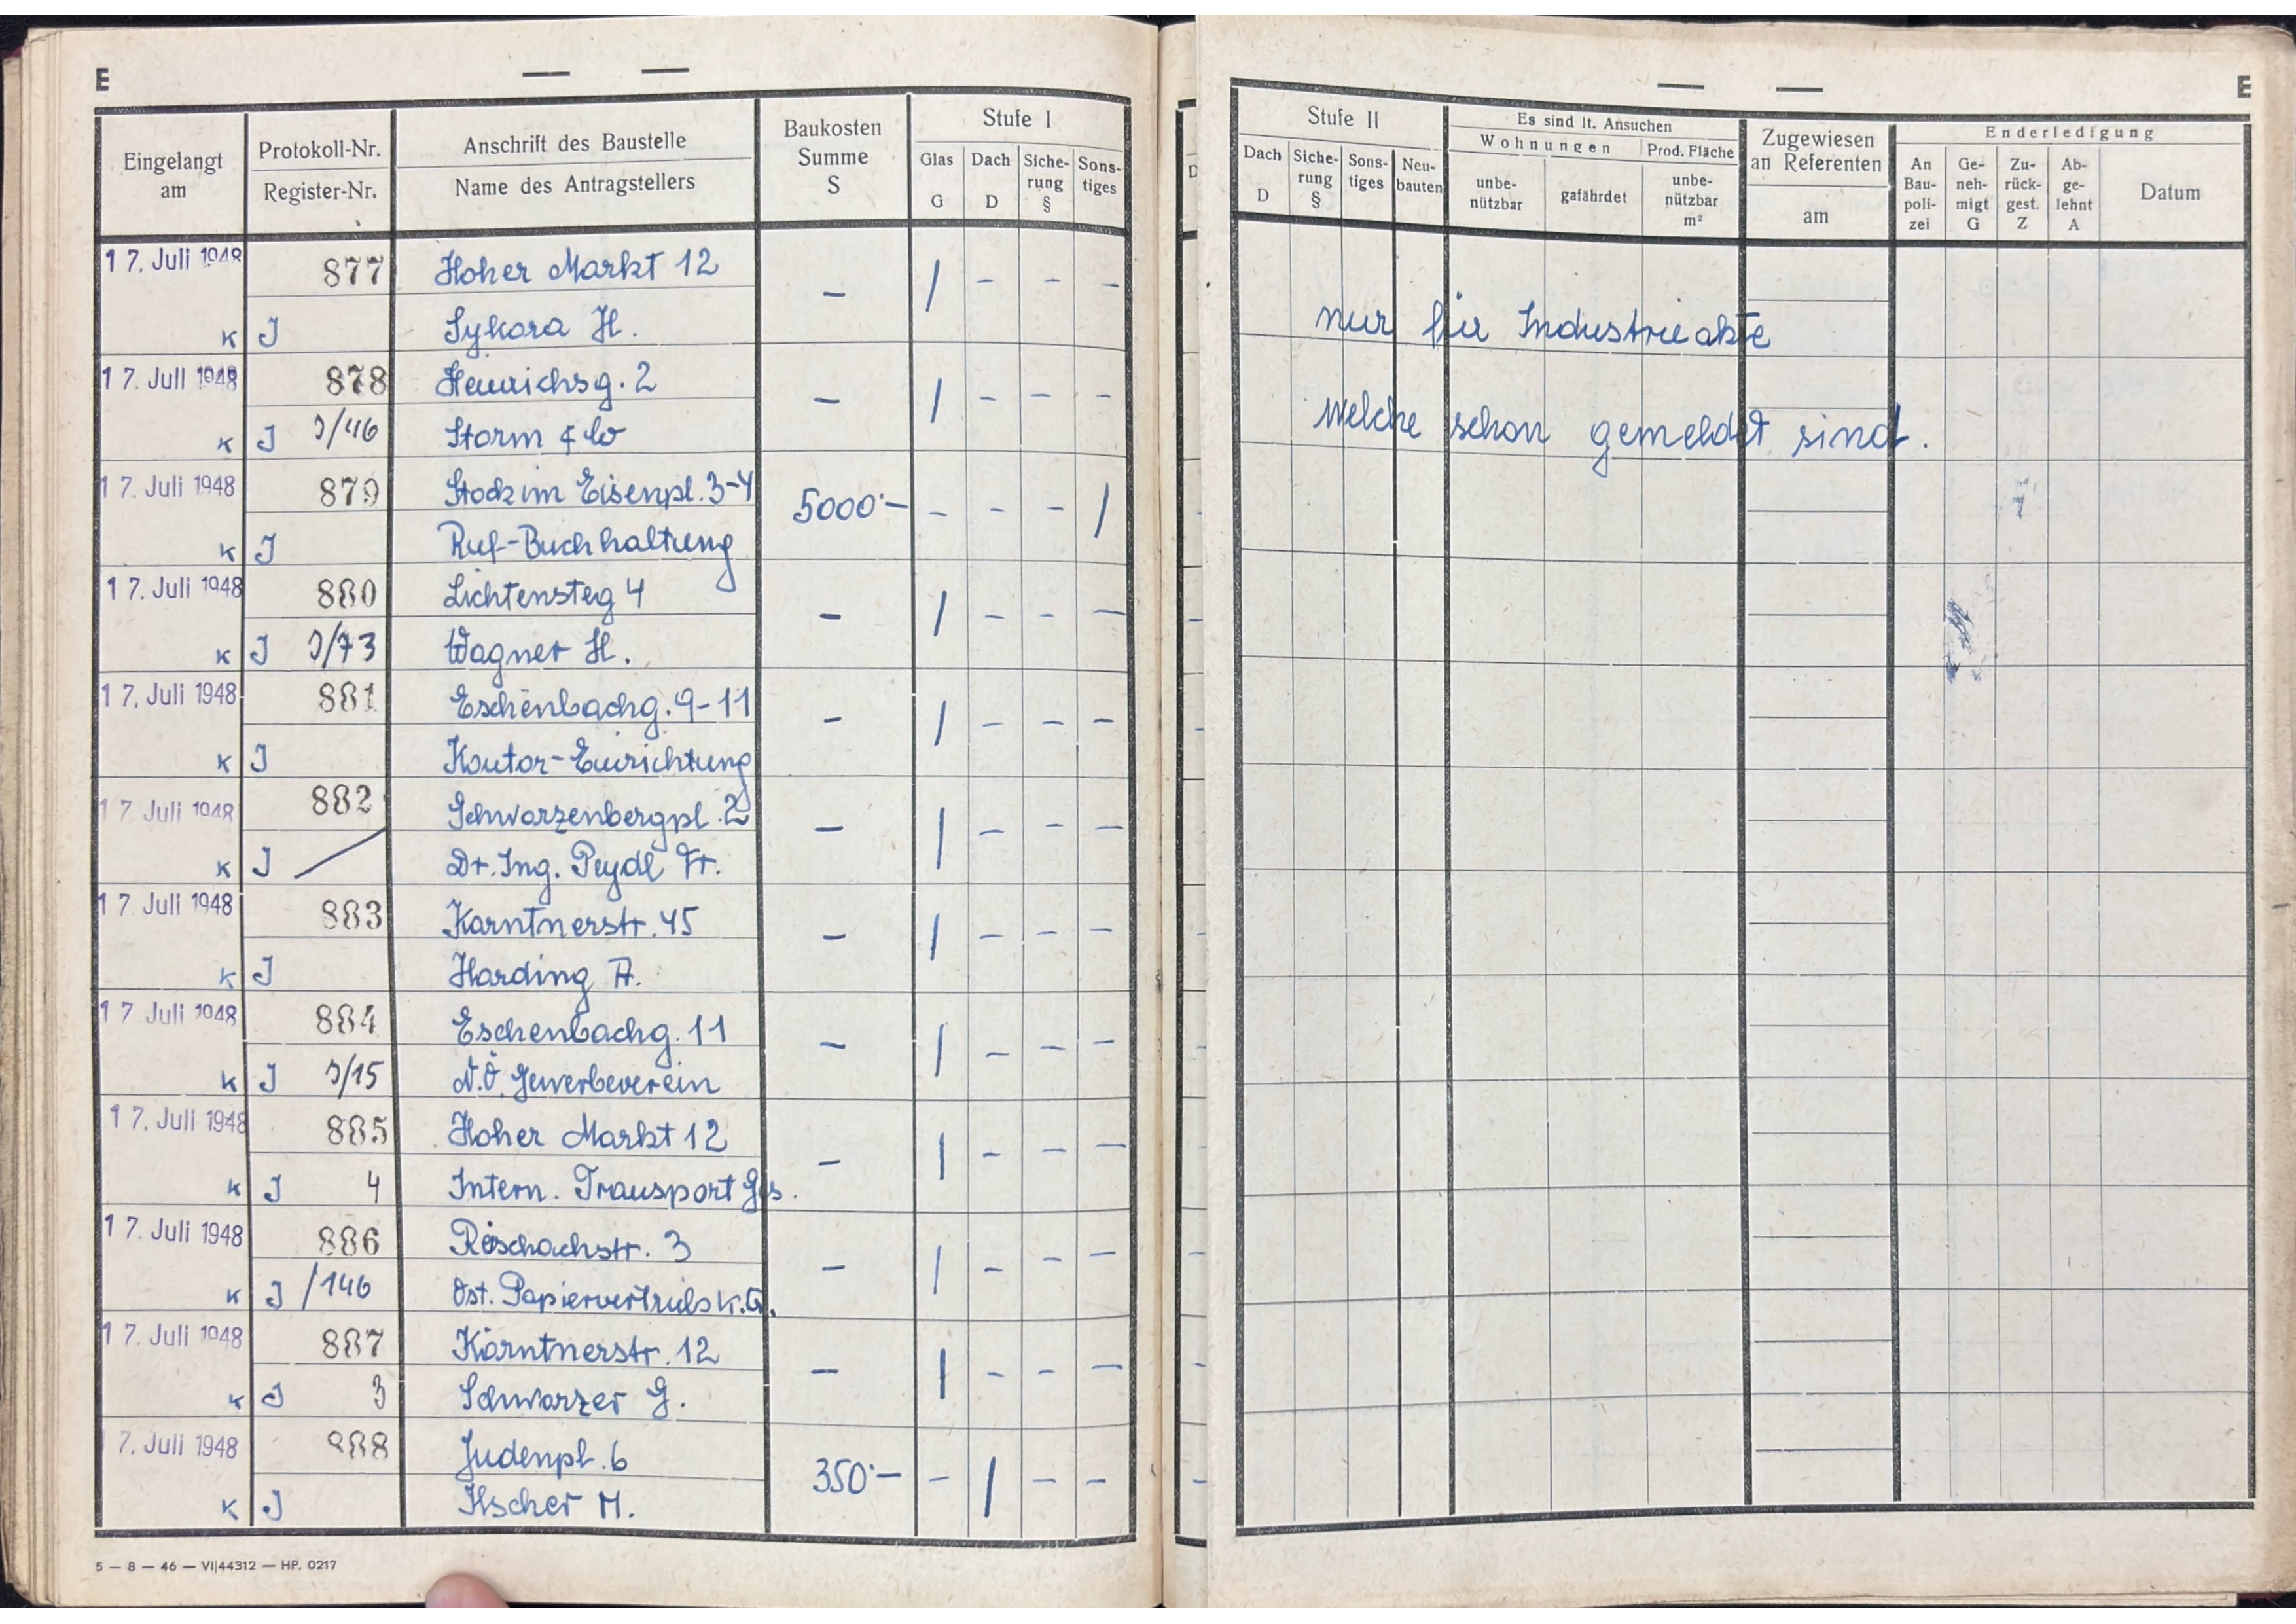 E
— —
Eingelangt am
Protokoll-Nr.
Register-Nr.
Anschrift des Baustelle
Name des Antragstellers
Baukosten Summe S
Stufe I
Glas G
Dach D
Siche-rung §
Sons-tiges
17. Juli 1948 877 Hoher Markt 12 – / – – –
K J Sykora H.
17. Juli 1948 878 Heinrichsg. 2 – / – – –
K J J/46 Storm & Co
17. Juli 1948 879 Stock im Eisenpl. 3-4 5000·– – – – /
K J Ruf-Buchhaltung
17. Juli 1948 880 Lichtensteg 4 – / – – –
K J J/73 Wagner H.
17. Juli 1948 881 Eschenbachg. 9-11 – / – – –
K J Kontor-Einrichtung
17. Juli 1948 882 Schwarzenbergpl. 2 – / – – –
K J / Dr. Ing. Peydl Fr.
17. Juli 1948 883 Kärntnerstr. 45 – / – – –
K J Harding A.
17. Juli 1948 884 Eschenbachg. 11 – / – – –
K J J/15 N.Ö. Gewerbeverein
17. Juli 1948 885 Hoher Markt 12 – / – – –
K J 4 Intern. Transport Ges.
17. Juli 1948 886 3 – / – – –
K J /146 Öst. Papiervertriebs K.G.
17. Juli 1948 887 Kärntnerstr. 12 – / – – –
K J 3 Schwarzer G.
7. Juli 1948 888 Judenpl. 6 350·– – / – –
K J M.
5 — 8 — 46 — VI|44312 — HP. 0217
— —
E
Stufe II
Dach D
Siche-rung §
Sons-tiges
Neu-bauten
Es sind lt. Ansuchen
Wohnungen
unbe-nützbar
gefährdet
Prod. Fläche
unbe-nützbar m²
Zugewiesen an Referenten
am
Enderledigung
An Bau-poli-zei
Ge-neh-migt G
Zu-rück-gest. Z
Ab-ge-lehnt A
Datum
nur für Industrieakte
welche schon gemeldet sind.